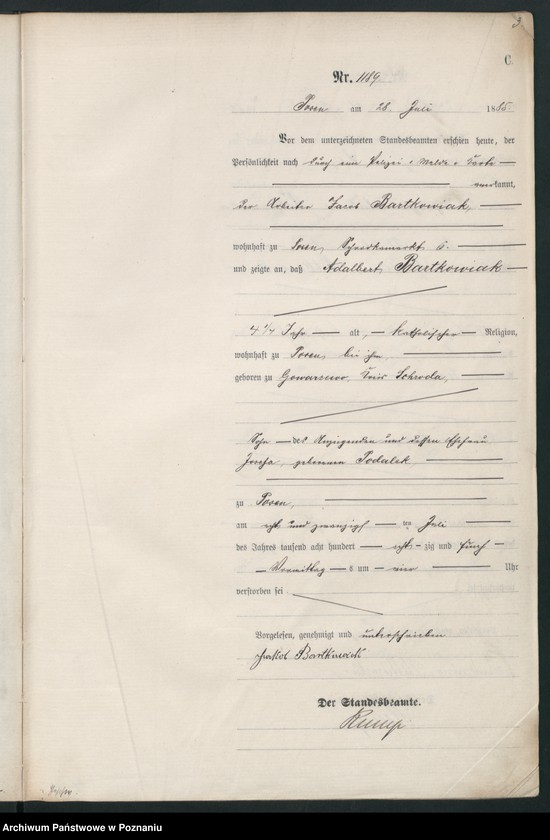 3
C.
Nr. 1189.
Posen am 28. Juli 1885.
Vor dem unterzeichneten Standesbeamten erschien heute, der
Persönlichkeit nach durch eine Polizei-Melde-Karte
anerkannt,
der Arbeiter Jacob Bartkowiak,
wohnhaft zu Posen,
und zeigte an, daß Adalbert Bartkowiak
4 1/4 Jahr alt, katholischer Religion,
wohnhaft zu Posen, bei ihm,
geboren zu Gowarzewo, Kreis Schroda,
Sohn des Anzeigenden und dessen Ehefrau
Josefa, geborenen Podalek
zu Posen,
am acht und zwanzigsten Juli
des Jahres tausend acht hundert acht zig und fünf
Vormittags um vier Uhr
verstorben sei
Vorgelesen, genehmigt und unterschrieben
Jakob Bartkowiak
Der Standesbeamte.
Archiwum Państwowe w Poznaniu